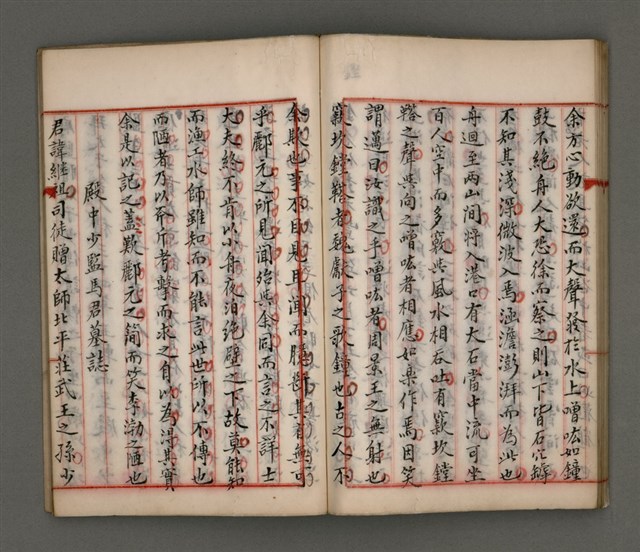 余方心動欲還而大聲發於水上噌吰如鐘
鼓不絕舟人大恐徐而察之則山下皆石穴罅
不知其淺深微波入焉涵澹澎湃而為此也
舟迴至兩山間將入港口有大石當中流可坐
百人空中而多竅與風水相吞吐有窾坎鏜
鞳之聲與向之噌吰者相應如樂作焉因笑
謂邁曰汝識之乎噌吰者周景王之無射也
窾坎鏜鞳者魏獻子之歌鐘也古之人不
余欺也事不目見耳聞而臆斷其有無可
乎酈元之所見聞殆與余同而言之不詳士
大夫終不肯以小舟夜泊絶壁之下故莫能知
而漁工水師雖知而不能言此世所以不傳也
而陋者乃以斧斤考擊而求之自以為得其實
余是以記之蓋歎酈元之簡而笑李渤之陋也
殿中少監馬君墓誌
君諱繼祖司徒贈太師北平莊武王之孫少